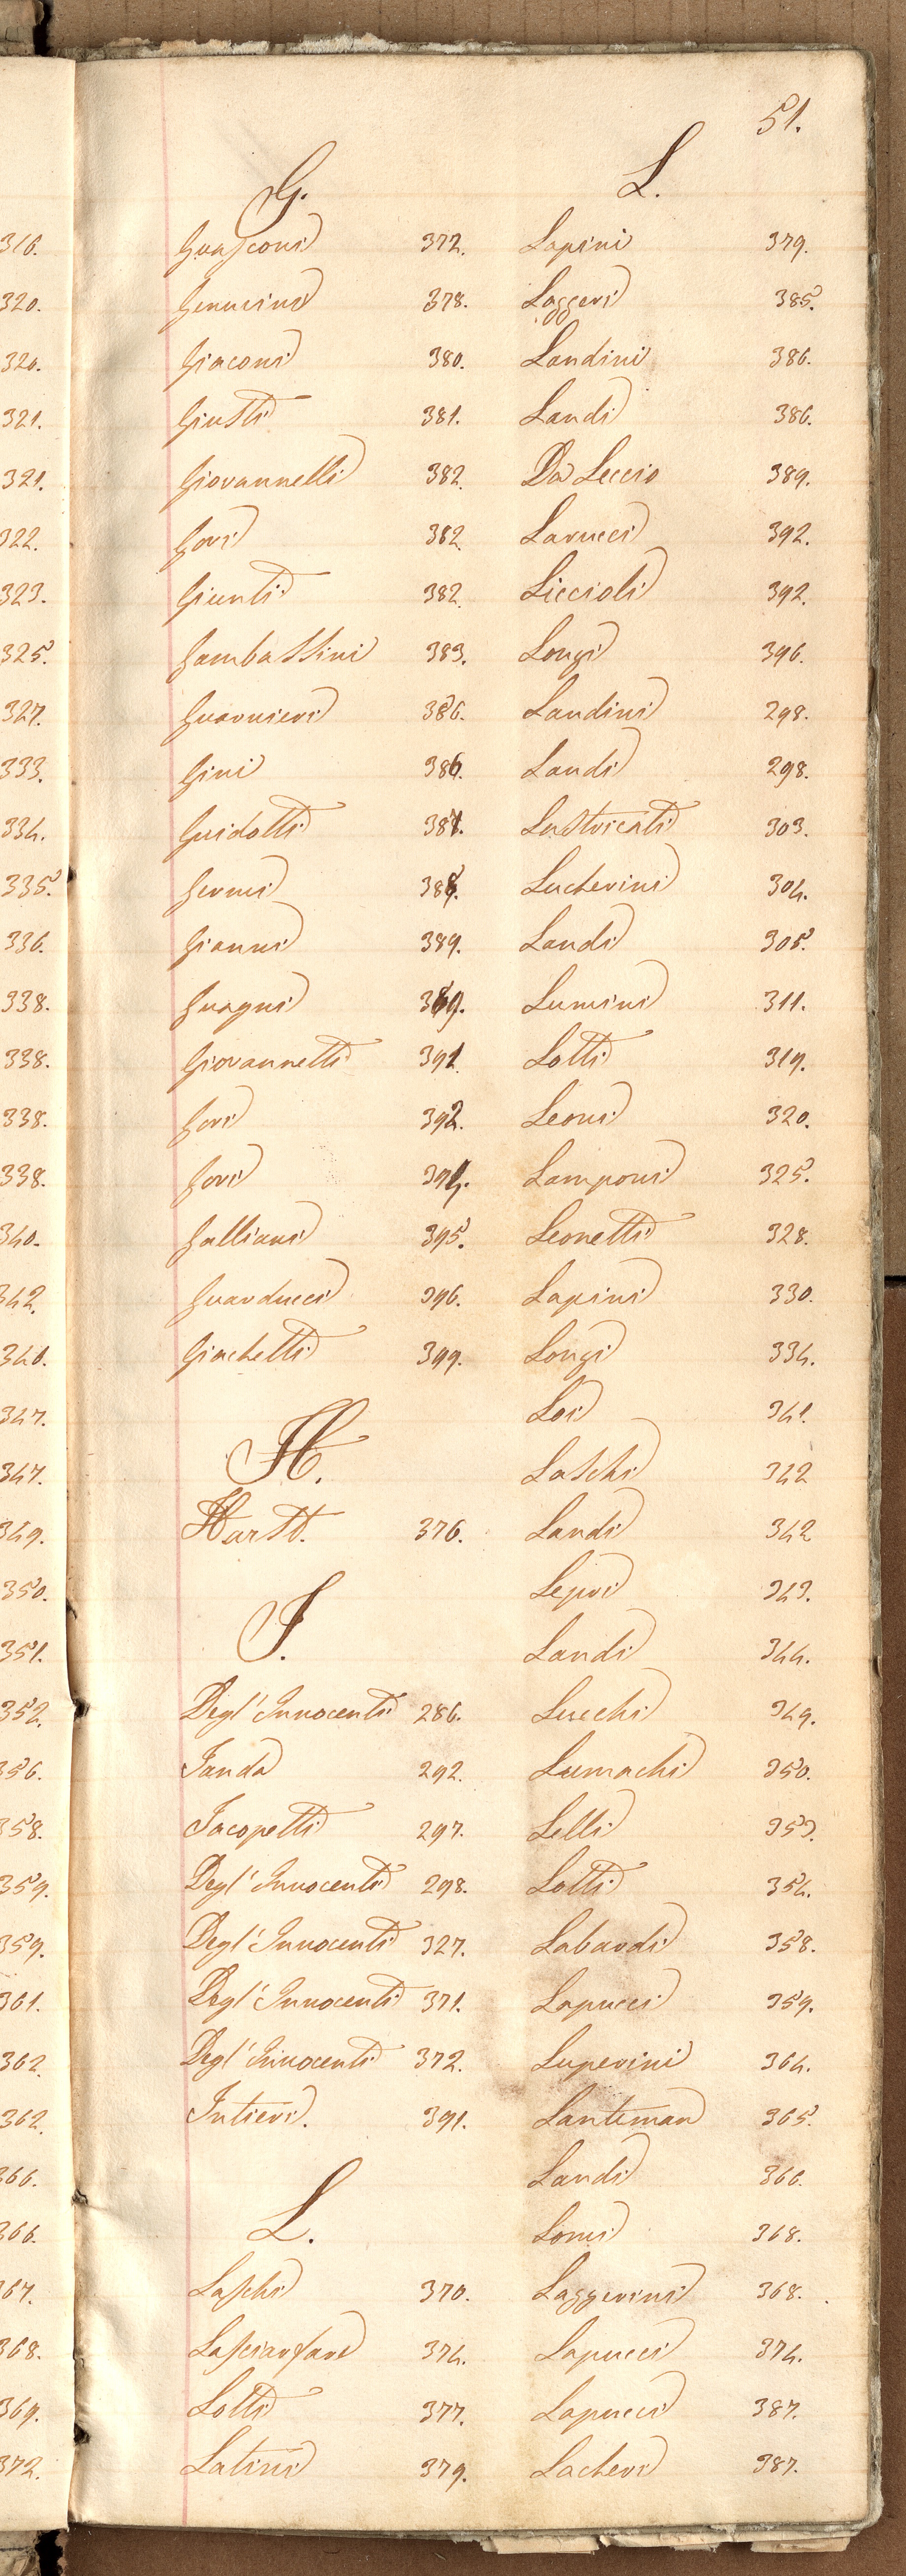 316.
320.
320.
321.
321.
322.
323.
325.
327.
333.
334.
335.
336.
338.
338.
338.
338.
340.
342.
340.
347.
347.
349.
350.
351.
352.
356.
358.
359.
359.
361.
362.
362.
366.
366.
367.
368.
369.
372.
51.
G.
Guasconi 372.
Genucini 378.
Giaconi 380.
Giusti 381.
Giovannelli 382.
Gori 382.
Giunti 382.
Gambassini 383.
Guarnieri 386.
Gini 386.
Guidotti 387.
Gernei 388.
Gianni 389.
Guagni 389.
Giovannetti 391.
Gori 392.
Gori 394.
Galliani 395.
Guarducci 396.
Giachetti 399.
H.
Hurst. 376.
I.
Degl' Innocenti 286.
Janda 292.
Jacopetti 297.
Degl' Innocenti 298.
Degl' Innocenti 327.
Degl' Innocenti 371.
Degl' Innocenti 372.
Intieri. 391.
L.
Laschi 370.
Lasciarfare 374.
Lotti 377.
Latini 379.
L.
Lapini 379.
Loggeri 385.
Landini 386.
Landi 386.
Da Leccio 389.
Larucci 392.
Liccioli 392.
Longi 396.
Landini 298.
Landi 298.
Lastricati 303.
Lucherini 304.
Landi 305.
Lumini 311.
Lotti 319.
Leoni 320.
Lamponi 325.
Leonetti 328.
Lapini 330.
Longi 334.
Loi 341.
Laschi 342
Landi 342
Lepri 343.
Landi 344.
Lucchi 349.
Lumachi 350.
Lelli 353.
Lotti 354.
Labardi 358.
Lapucci 359.
Luperini 364.
Lanteman 365.
Landi 366.
Lomi 368.
Laggerini 368.
Lapucci 374.
Lapucci 387.
Lacheri 387.